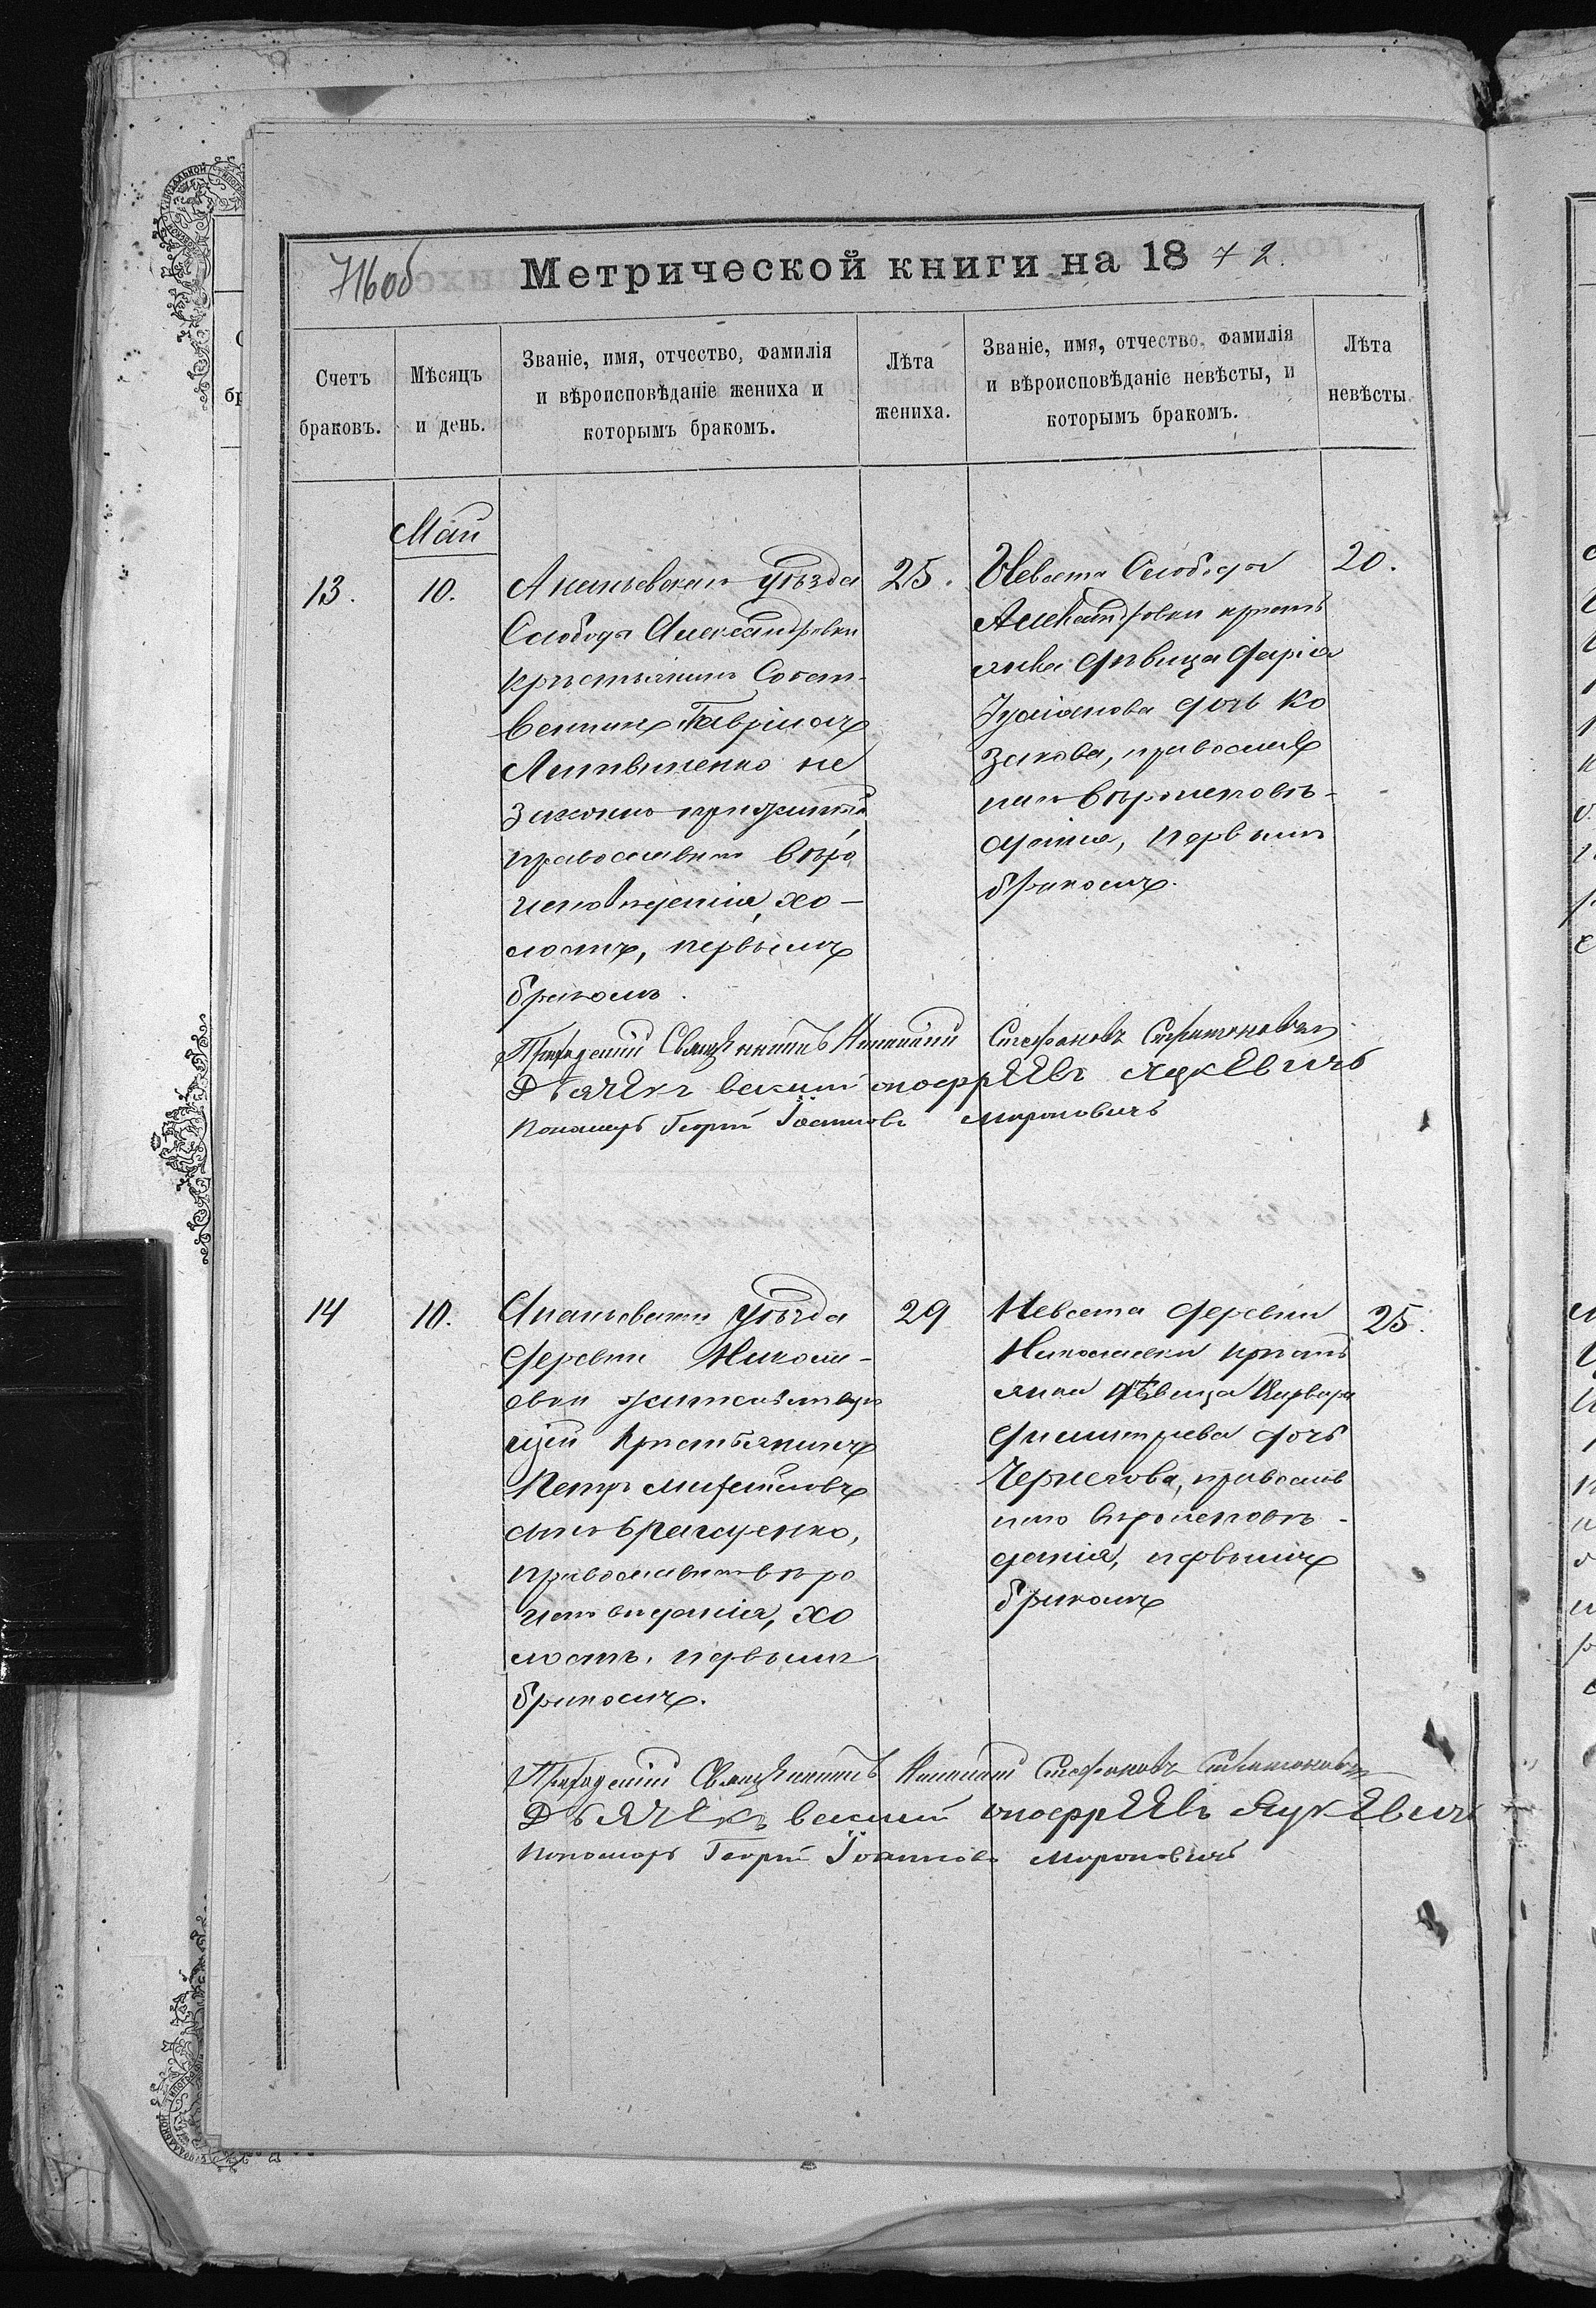 716об
Метрической книги на 1872.
Счетъ браковъ.
Мѣсяцъ и день.
Званіе, имя, отчество, фамилія
и вѣроисповѣданіе жениха и
которымъ бракомъ.
Лѣта жениха.
Званіе, имя, отчество, фамилія
и вѣроисповѣданіе невѣсты, и
которымъ бракомъ.
Лѣта невѣсты.
Май
13.
10.
Ананьевскаго уѣзда
Слободы Александровки
крѣстьянинъ Собст-
венникъ Гавріилъ
Литвиненко не
законно прижитый
православнаго вѣро
исповѣденія, хо-
лостъ, первымъ
бракомъ.
25.
Невеста Слободы
Александровки крестъ
янка дѣвица Дарія
Іуліанова дочь Ко
закова, православ
наго вѣроисповѣ-
данія, первымъ
бракомъ.
20.
Приходскій Священникъ Стефановъ
Дьячекъ Василий Андрѣевъ Яцкевичъ
Пономарь Георгій Іоанновъ Мироновичъ
14
10.
Ананьевскаго уѣзда
деревни Никола-
евки жительствую
щій Крѣстьянинъ
Петръ Михайловъ
сынъ
православнаго вѣро
исповѣданія, хо
лостъ, первымъ
бракомъ.
29
Невеста деревни
Николаевки крѣсть
янка дѣвица Варвара
Димитріева дочь
православ
наго вѣроисповѣ-
данія, первымъ
бракомъ
25.
Приходскій Священникъ Стефановъ
Дьячекъ Василий Андрѣевъ Яцкевичъ
Пономарь Георгій Іоанновъ Мироновичъ